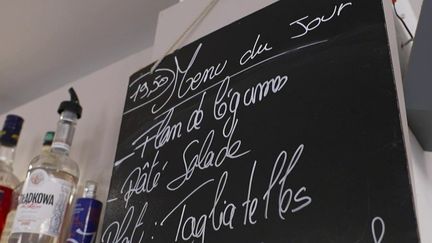 19,50 Menu du Jour
- Flan de légumes
- Pâté Salade
Plat : Tagliatelles
ŁADKOWA